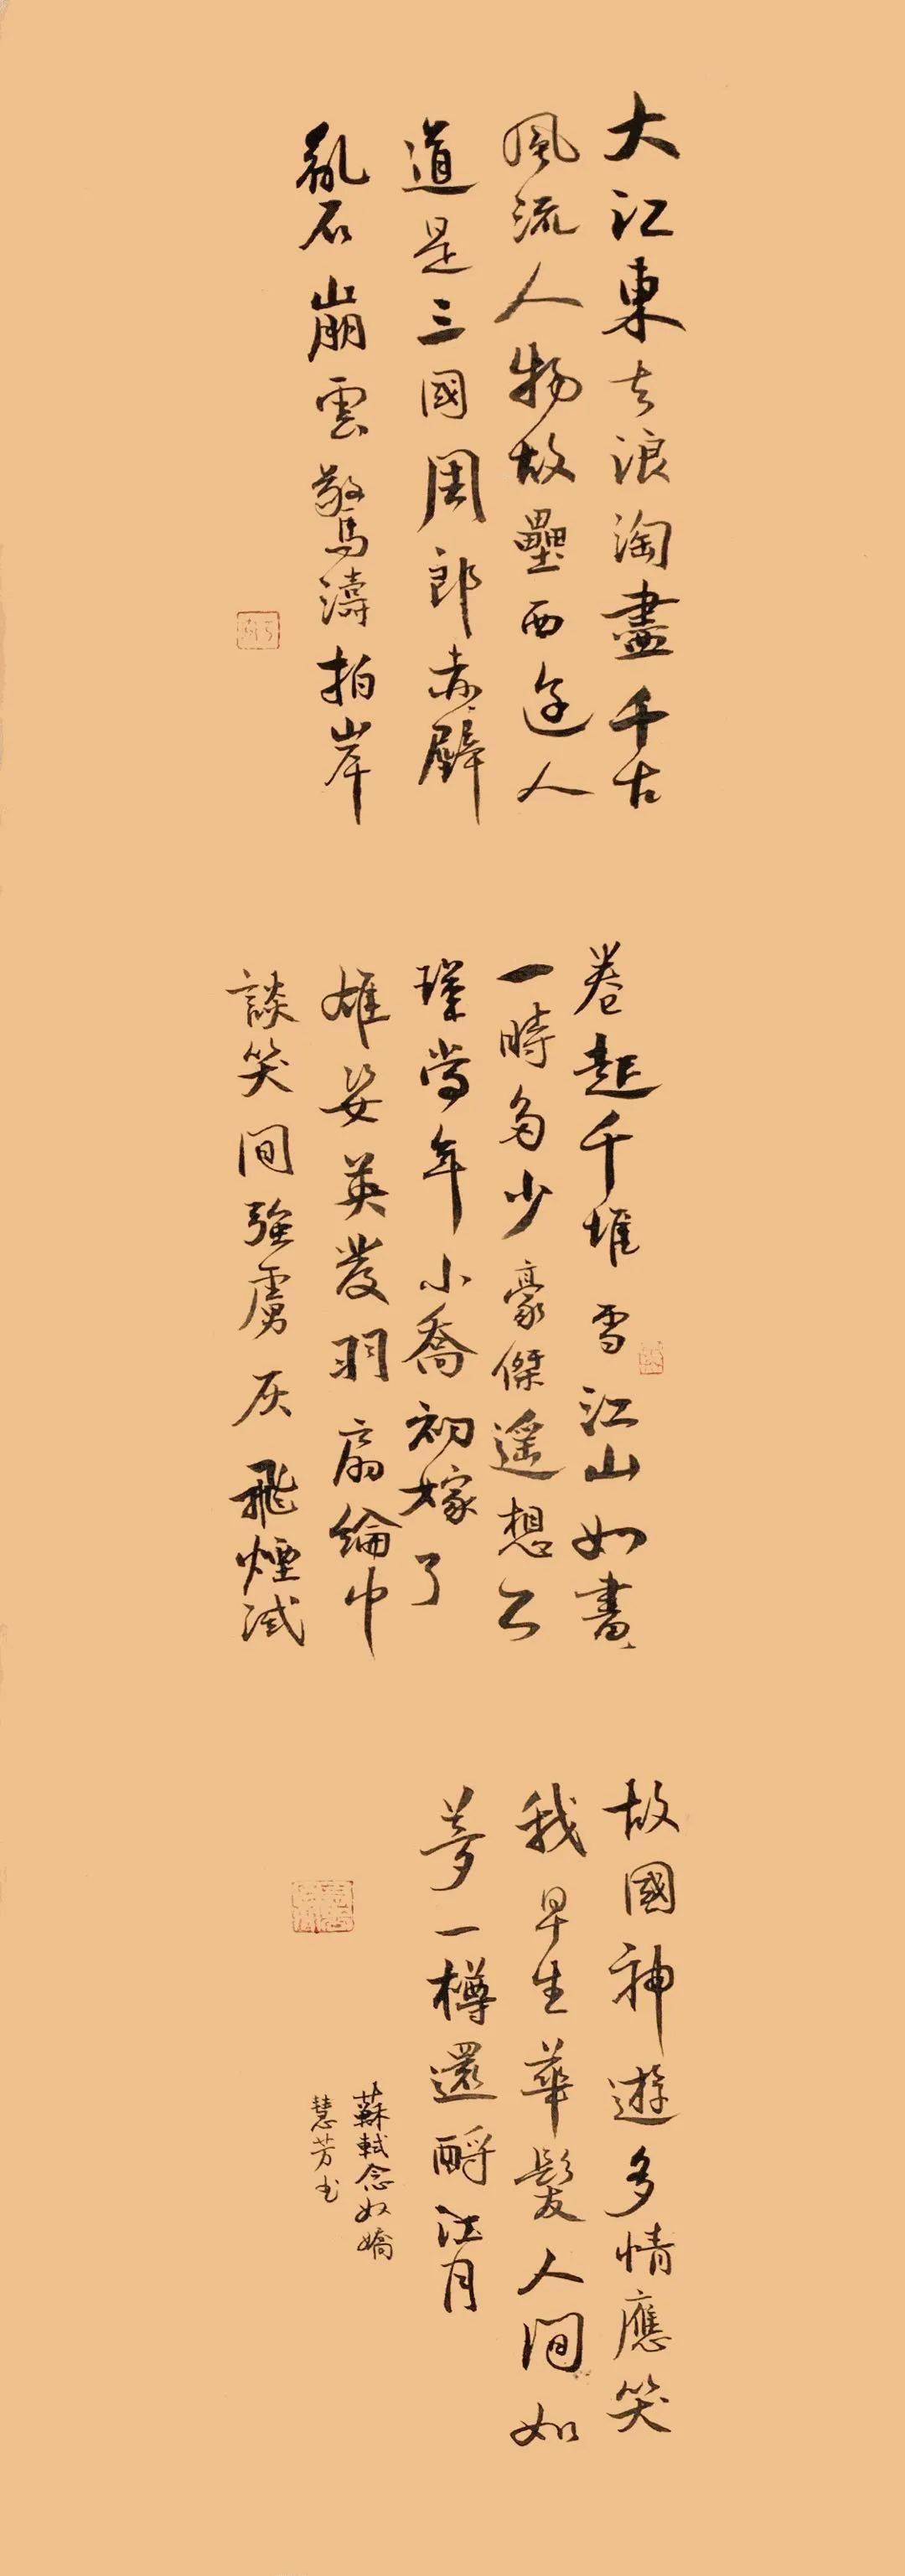 大江東去浪淘盡千古
風流人物故壘西邊人
道是三國周郎赤壁
亂石崩雲驚濤拍岸
卷起千堆雪江山如畫
一時多少豪傑遙想公
瑾當年小喬初嫁了
雄姿英發羽扇綸巾
談笑間強虜灰飛煙滅
故國神遊多情應笑
我早生華髮人間如
夢一樽還酹江月
蘇軾念奴嬌
慧芳书